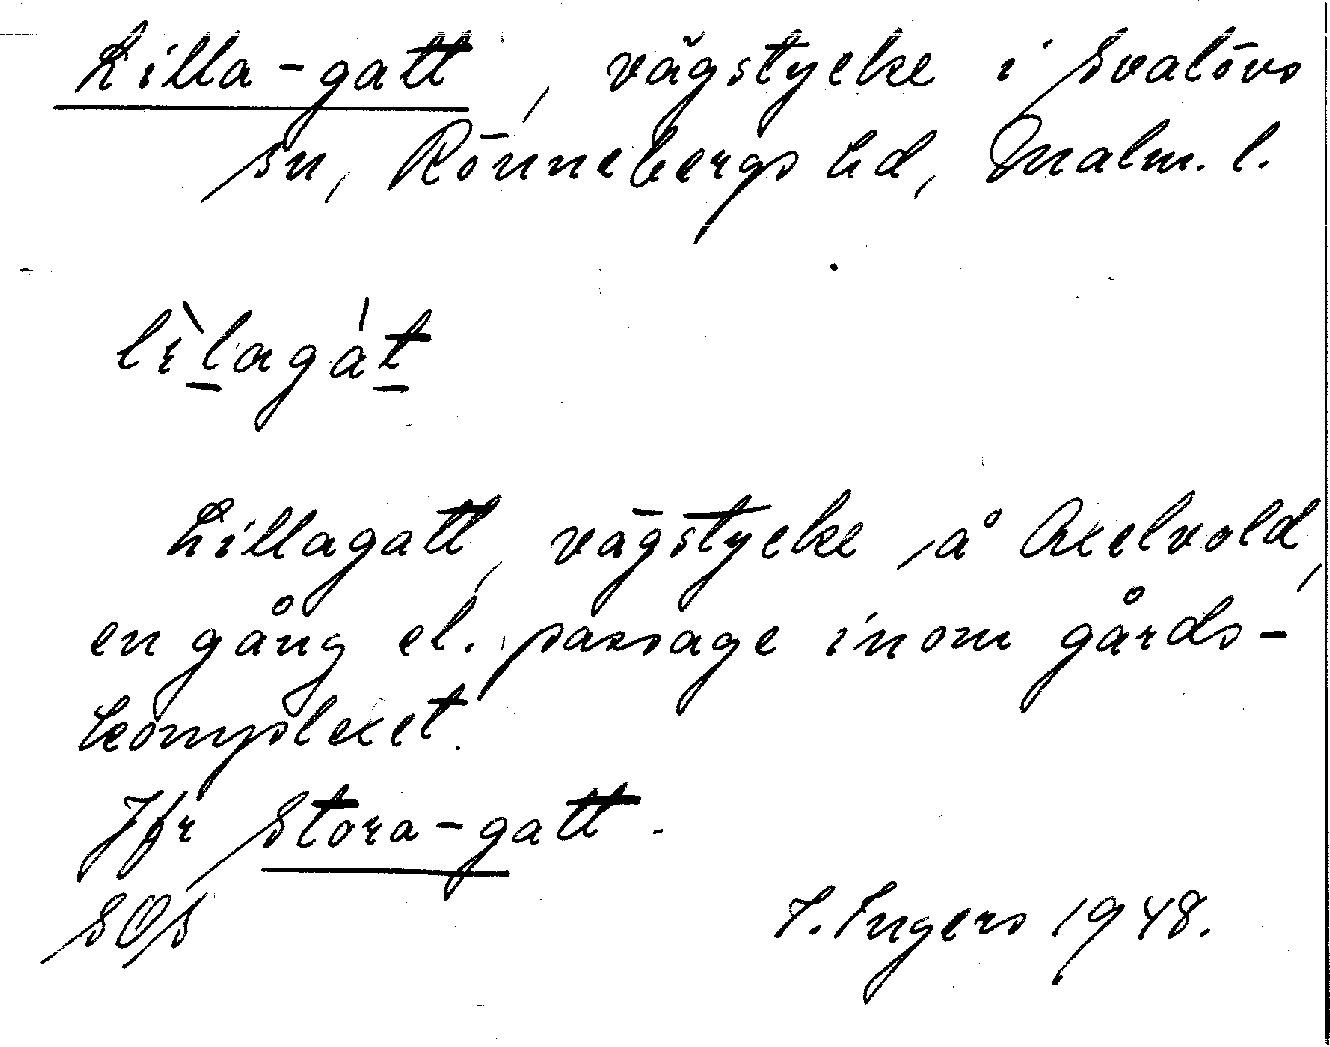 Lilla-gatt, vägstycke i Svalövs
sn, Rönnebergs hd, Malm. l.
lìlagát
Lillagatt, vägstycke å Axelvold,
en gång el. passage inom gårds-
komplexet.
Jfr Stora-gatt.
SOS I. Ingers 1948.